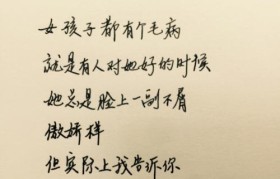 女孩子都有个毛病
就是有人对她好的时候
她总是脸上一副不屑
傲娇样
但实际上我告诉你